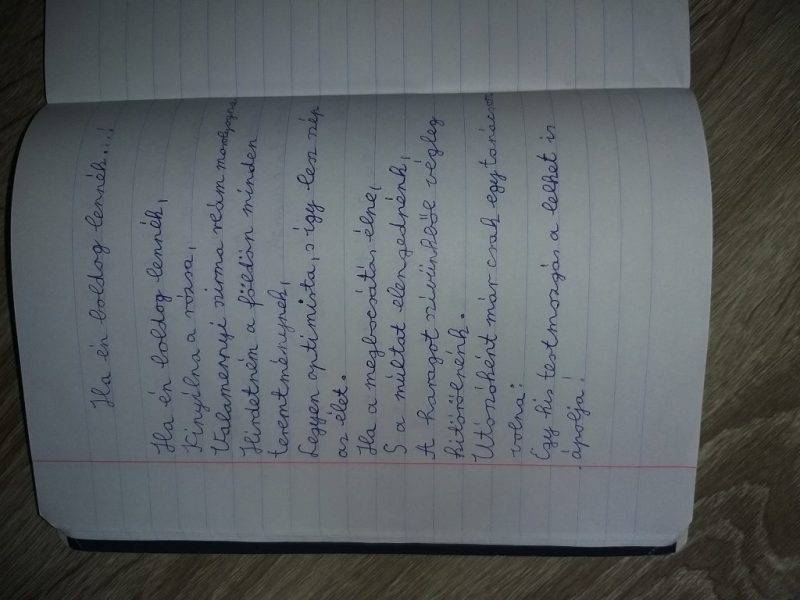 Ha én boldog lennék...!
Ha én boldog lennék,
Kinyílna a rózsa,
Valamennyi szirma reám mosolyogna
Hirdetném a földön minden
teremténynek,
Legyen optimista, s így lesz szép
az élet.
Ha a megbocsátás élne,
S a múltat elengednénk,
A haragot szívünkből végleg
kitörölnénk.
Utószóként már csak egy tanácsom
volna:
Egy kis testmozgás a lelhet is
ápolja!